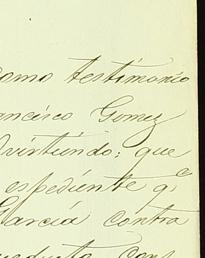 como testimonio
ancisco Gomez
dvirtiendo; que
espediente qe
Garcia contra